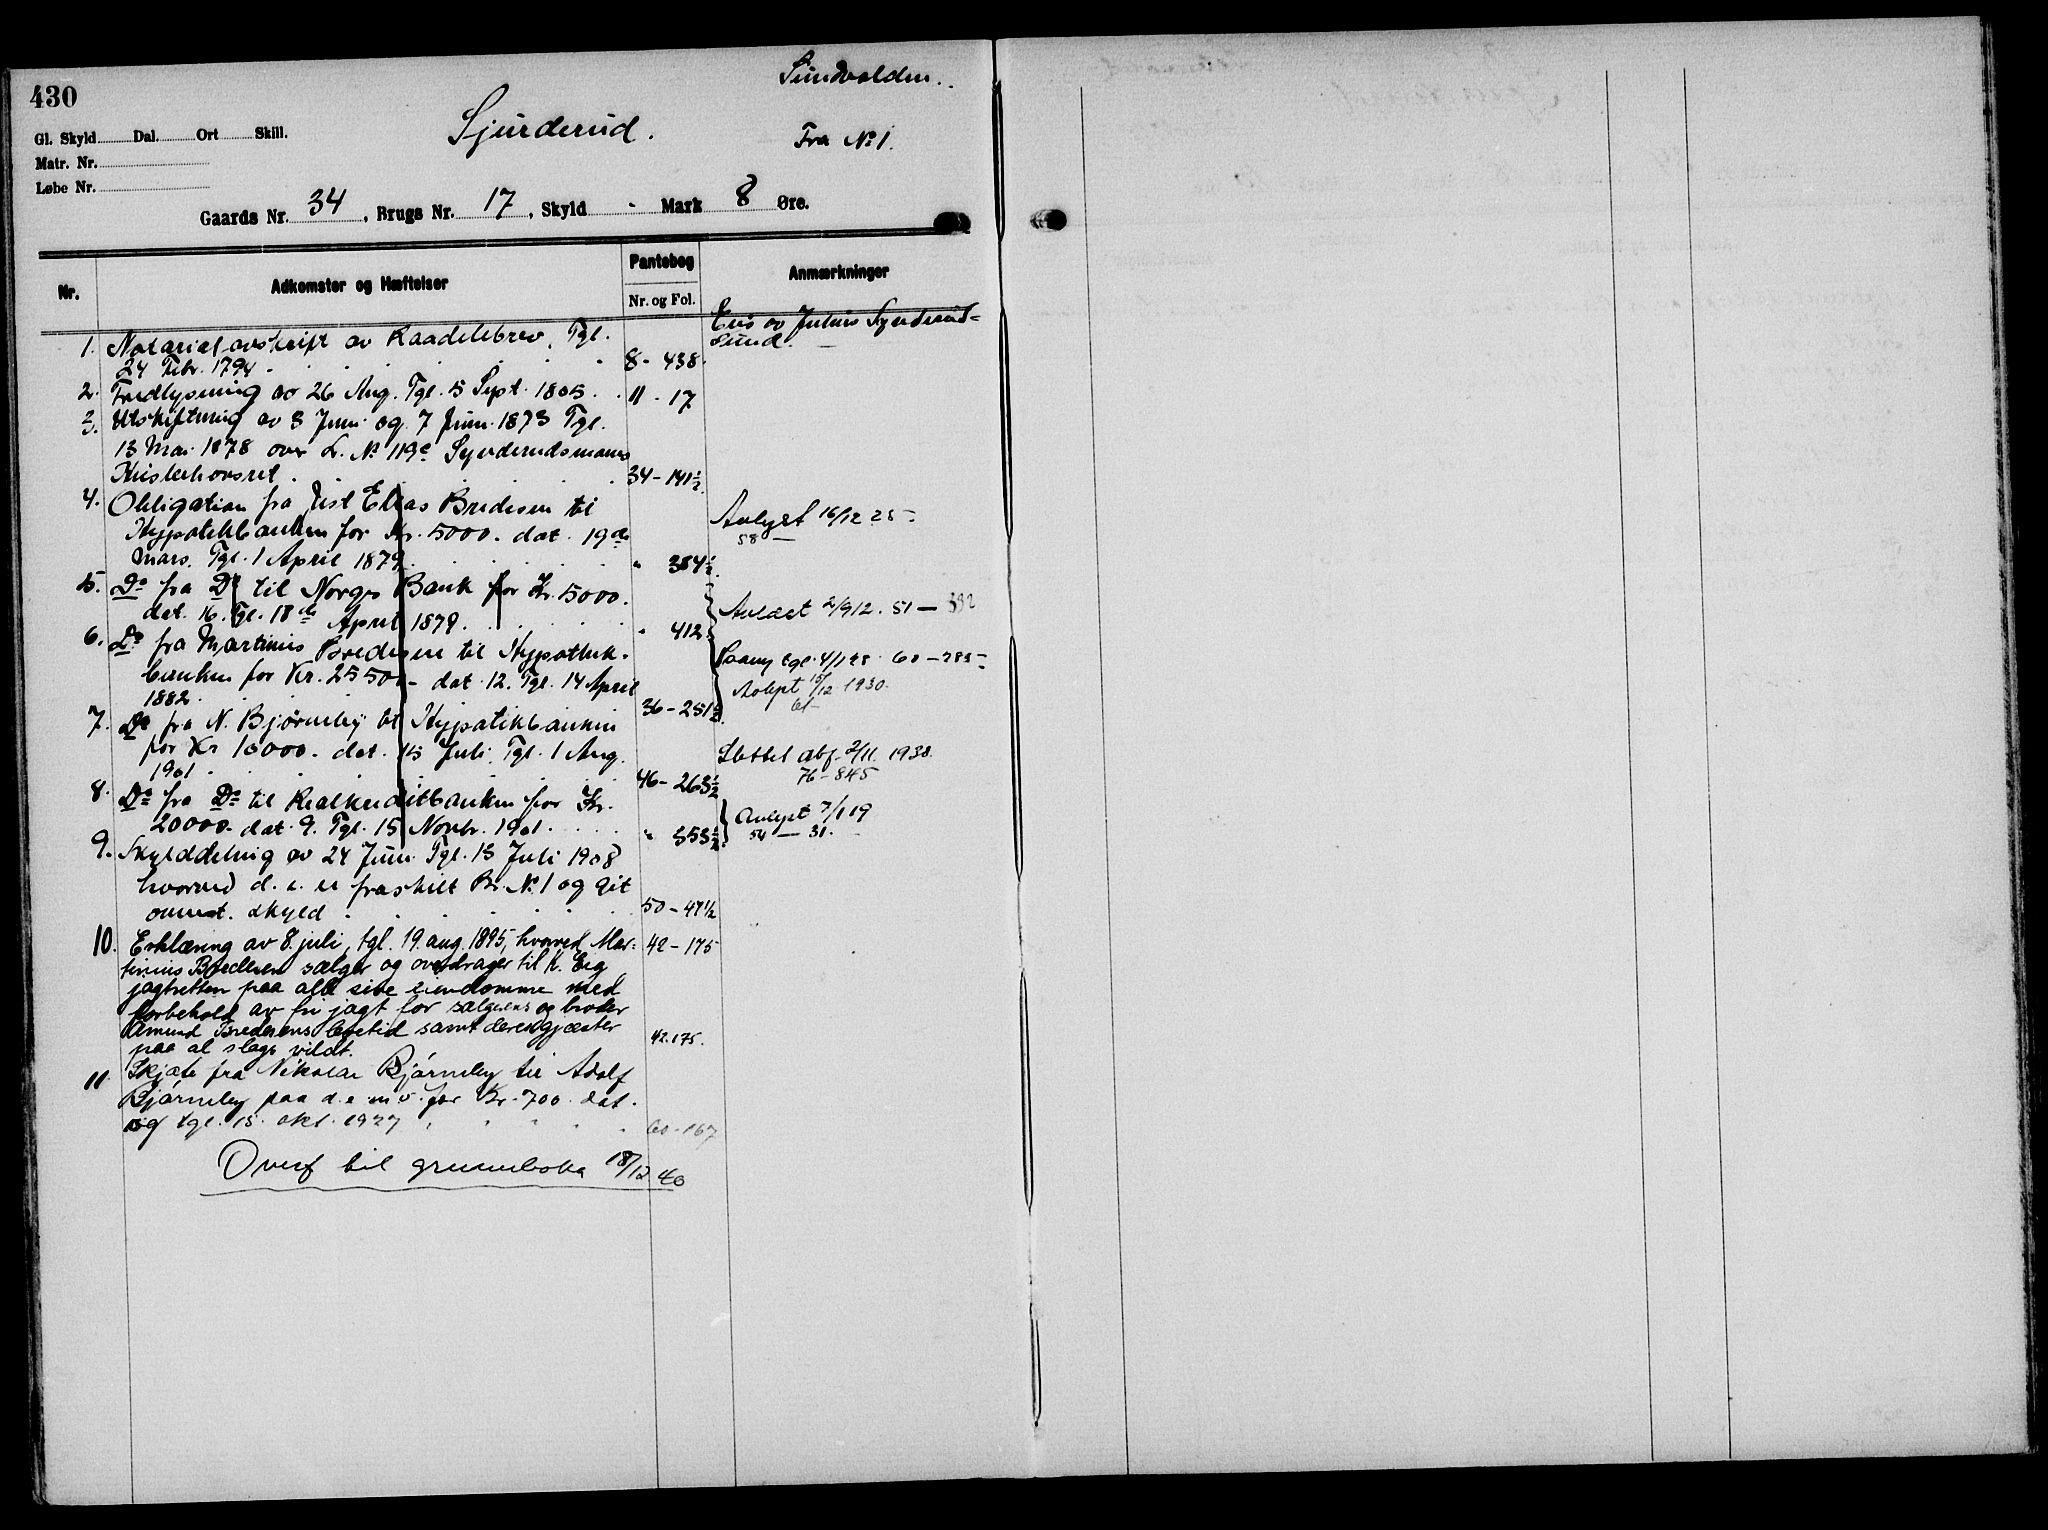 430
Sundvolden.
Sjurderud.
Fra No 1.
Gl. Skyld Dal. Ort Skill.
Matr. Nr.
Løbe Nr.
Gaards Nr. 34, Brugs Nr. 17, Skyld - Mark 8 Øre.
Nr. Adkomster og Hæftelser Pantebog Nr. og Fol. Anmærkninger
Eies av Julius
sund.
1. Notarialavskrift av Raadelsbrev, Tgl.
24 Febr. 1794. 8 - 438.
2. Fredlysning av 26 Aug. Tgl. 5 Sept. 1805. 11 - 17
3. Utskiftning av 3 Juni og 7 Juni 1873 Tgl.
13 Mai 1878 over L. No 119c
34 - 141½
4. Obligation fra Just Elias Bredesen til
Hypotekbanken for Kr. 5000. dat. 19de Avlyst 16/12 25 -
58 —
Mars. Tgl. 1 April 1879. " 384½
5. Do fra Do til Norges Bank for Kr. 5000.
dat. 16. Tgl. 18de April 1879. " 412. Avlæst 2/9 12. 51 — 392
6. Do fra Martinius Bredesen til Hypothek-
banken for Kr. 2550. - dat. 12. Tgl. 14 April Paany tgl. 4/1 28. 60 - 285 -
1882. 36 - 251½ Avlyst 15/12 1930.
61 -
7. Do fra N. Bjørneby til Hypotekbanken
for Kr 10000. dat. 15 Juli. Tgl. 1 Aug. Slettet 2/11. 1938.
76 - 845
1901 46 - 263½
8. Do fra Do til Realkreditbanken for Kr.
20000. dat. 9. Tgl. 15 Novbr. 1901. " 353½ Avlyst 7/1 19
54 — 31.
9. Skylddeling av 24 Juni Tgl. 13 Juli 1908
hvorved d. e. er fraskilt Br. No. 1 og git
ovennt. skyld 50 - 47½
10. Erklæring av 8. juli, tgl. 19. aug. 1895, hvorved Mar- 42 - 175
tinius Bredesen sælger og overdrager til K. Eeg
jagtretten paa alle sine eiendomme med
forbehold av fri jagt for sælgerens og broder
Amund Bredesens levetid samt deres gjæster 42.175.
paa al slags vildt.
11. Skjøte fra Nikolai Bjørneby til Adolf
Bjørneby paa d. e. m. v. for Kr. 700. dat.
og tgl. 15. okt. 1927 60 - 167
Overf til grunnboka 18/12 40